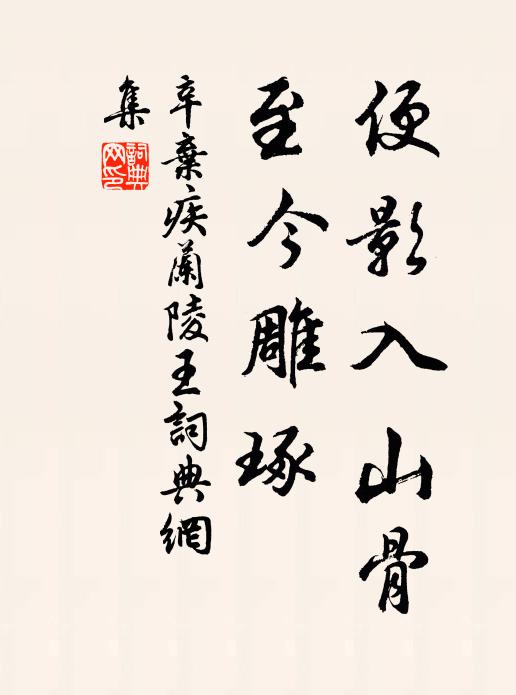 便影入山骨
至今雕琢
辛棄疾蘭陵王詞典網
集
詞典
网印